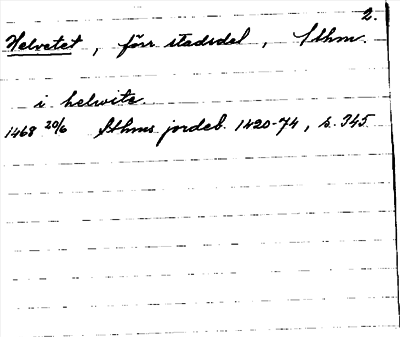 2.
Helvetet, förr stadsdel, Sthm.
i helwite.
1468 20/6 Sthms jordeb. 1420-74, s. 345.